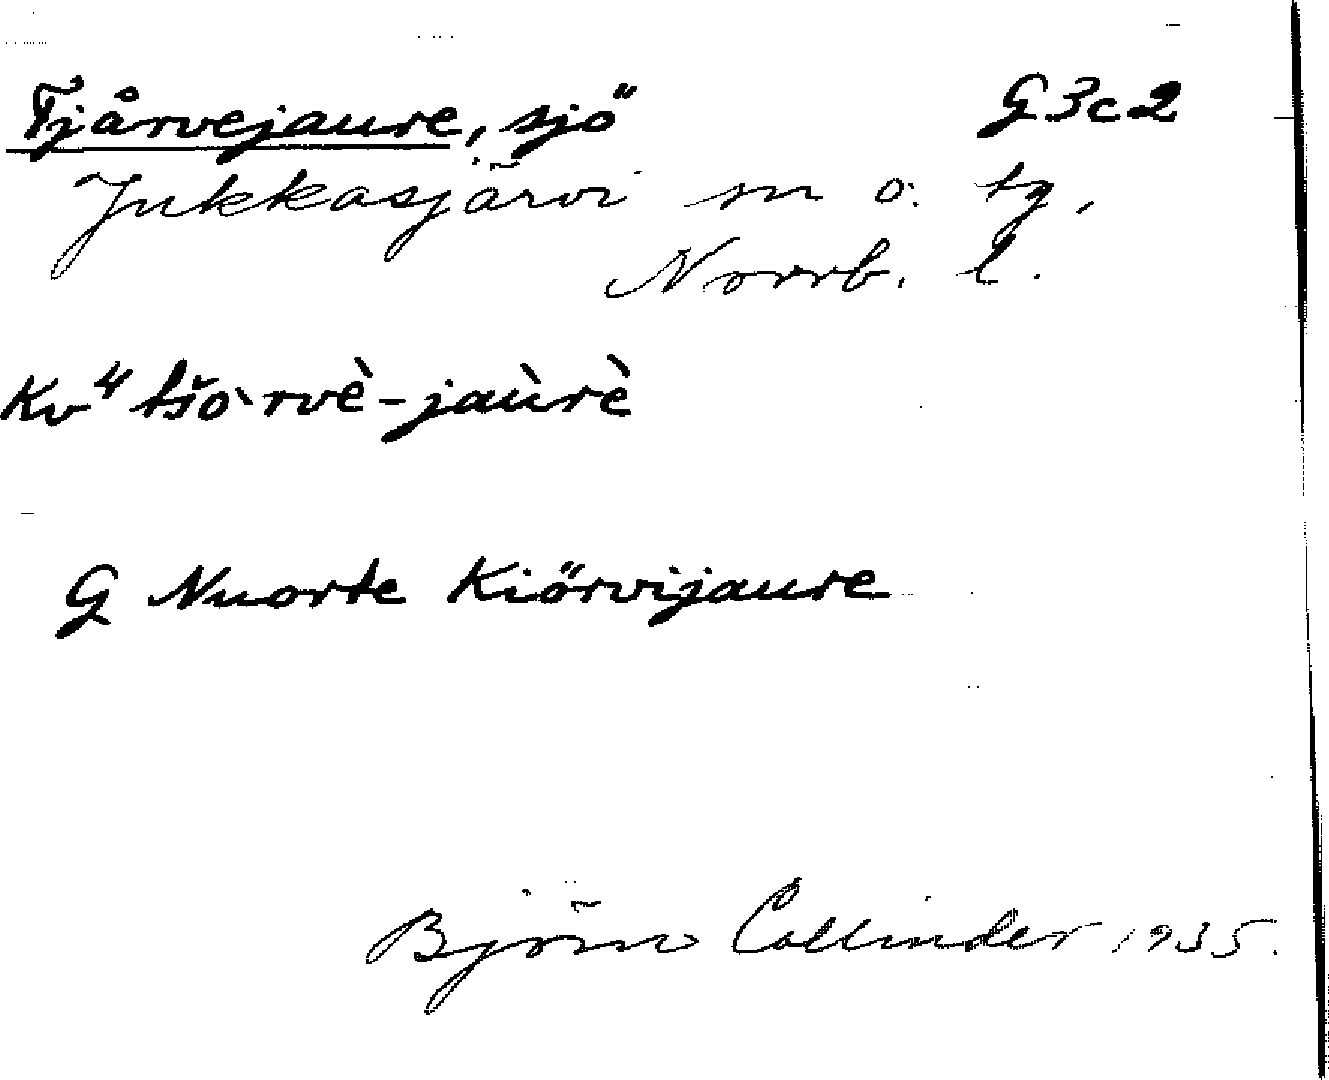 Tjårvejaure, sjö G3c2
Jukkasjärvi sn o. tg,
Norrb. l.
Kv⁴ tšo`rvè-jaùrè
G Nuorte Kiörvijaure
Björn Collinder 1935.